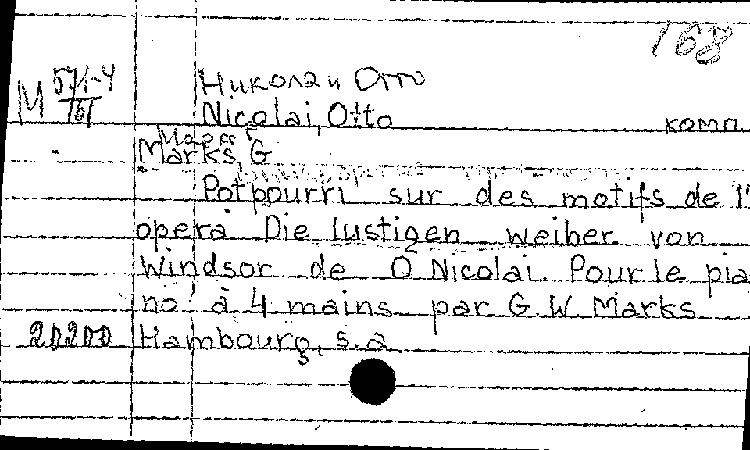 168
М 571-4/161
Николаи Отто
Nicolai, Otto комп.
Маркс Г
Marks, G
Potpourri sur des motifs de l'
opera Die lustigen weiber von
Windsor de O Nicolai. Pour le pia
no à 4 mains par G. W Marks
20200 Hambourg, s. a